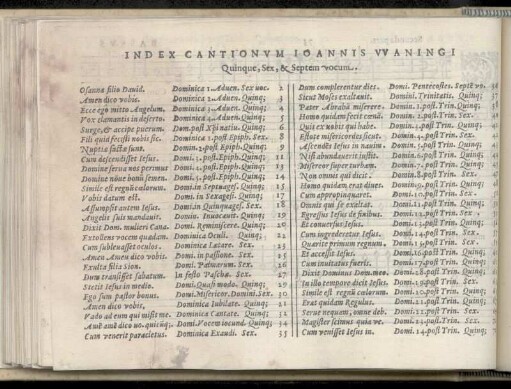 INDEX CANTIONVM IOANNIS VVANINGI
Quinque, Sex, & Septem vocum.
Osanna filio Dauid. Dominica 1. Aduen. Sex uoc. 2
Amen dico vobis. Dominica 1. Aduen. Quinq; 3
Ecce ego mitto Angelum. Dominica 3. Aduen. Quinq; 4
Vox clamantis in deserto. Dominica 4. Aduen. Quinq; 5
Surge, & accipe puerum. Dom. post Xpi natiu. Quinq; 6
Fili quid fecisti nobis sic. Dominica 1. post Epiph. Sex. 8
Nuptiæ factæ sunt. Domin. 2. post Epiph. Quinq; 9
Cum descendisset Iesus. Domi. 3. post Epiph. Quinq; 11
Domine serua nos perimus Domi. 4. post Epiph. Quinq; 13
Domine nõne bonũ semen. Domi. 5. post Epiph. Quinq; 14
Simile est regnũ cœlorum. Domi. in Septuages. Quinq; 15
Vobis datum est. Domi. in Sexages. Quinq; 17
Assumpsit autem Iesus. Domi. in Quinquages. Sex. 18
Angelis suis mandauit. Domin. Inuocauit. Quinq; 19
Dixit Dom. mulieri Cana. Domi. Reminiscere. Quinq; 20
Extollens vocem quadam. Dominica Oculi. Quinq; 22
Cum subleuasset oculos. Dominica Lætare. Sex. 23
Amen Amen dico vobis. Domi. in passione. Sex. 25
Exulta filia Sion. Domi. Palmarum. Sex. 26
Dum transisset sabatum. In festo Paschæ. Sex. 27
Stetit Iesus in medio. Domi. Quasi modo. Quinq; 29
Ego sum pastor bonus. Domi. Misericor. Domini. Sex. 30
Amen dico vobis. Dominica Iubilate. Quinq; 31
Vado ad eum qui misit me. Dominica Cantate. Quinq; 32
Amẽ amẽ dico uo. quicũq; Domi. Vocem iocund. Quinq; 34
Cum venerit paracletus. Dominica Exaudi. Sex. 35
Dum complerentur dies. Domi. Pentecostes. Septẽ vo.
Sicut Moses exaltauit. Domini. Trinitatis. Quinq;
Pater Abrahã miserere. Domi. 1. post Trin. Quinq;
Homo quidam fecit cœnã. Domi. 2. post Trin. Sex.
Quis ex vobis qui habet. Domi. 3. post Trin. Quinq;
Estote misericordes sicut. Domi. 4. post Trin. Sex.
Ascendẽs Iesus in nauim. Domin. 5. post Trin. Quinq;
Nisi abundauerit iustit. Domin. 6. post Trin. Quinq;
Misereor super turbam. Domin. 7. post Trin. Quinq;
Non omnis qui dicit. Domin. 8. post Trin. Sex.
Homo quidam erat diues. Domin. 9. post Trin. Quinq;
Cum appropinquaret. Domi. 10. post Trin. Quinq;
Omnis qui se exaltat. Domi. 11. post Trin. Quinq;
Egressus Iesus de finibus. Domi. 12. post Trin. Sex.
Et conuersus Iesus. Domi. 13. post Trin. Quinq;
Cum ingrederetur Iesus. Domi. 14. post Trin. Sex.
Quærite primum regnum. Domi. 15. post Trin. Sex.
Et accessit Iesus. Domi. 16. post Trin. Quinq;
Cum inuitatus fueris. Domi. 17. post Trin. Quinq;
Dixit Dominus Dom. meo. Domi. 18. post Trin. Quinq;
In illo tempore dicit Iesus. Domi. 19. post Trin. Sex.
Simile est regnũ cœlorum. Domi. 20. post Trin. Quinq;
Erat quidam Regulus. Domi. 21. post Trin. Sex.
Serue nequam, omne deb. Domi. 22. post Trin. Quinq;
Magister scimus quia ve. Domi. 23. post Trin. Quinq;
Cum venisset Iesus in. Domi. 24. post Trin. Quinq;